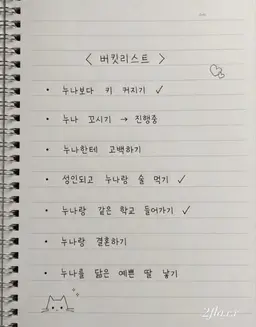 < 버킷리스트 >
• 누나보다 키 커지기 ✓
• 누나 꼬시기 → 진행중
• 누나한테 고백하기
• 성인되고 누나랑 술 먹기 ✓
• 누나랑 같은 학교 들어가기 ✓
• 누나랑 결혼하기
• 누나를 닮은 예쁜 딸 낳기